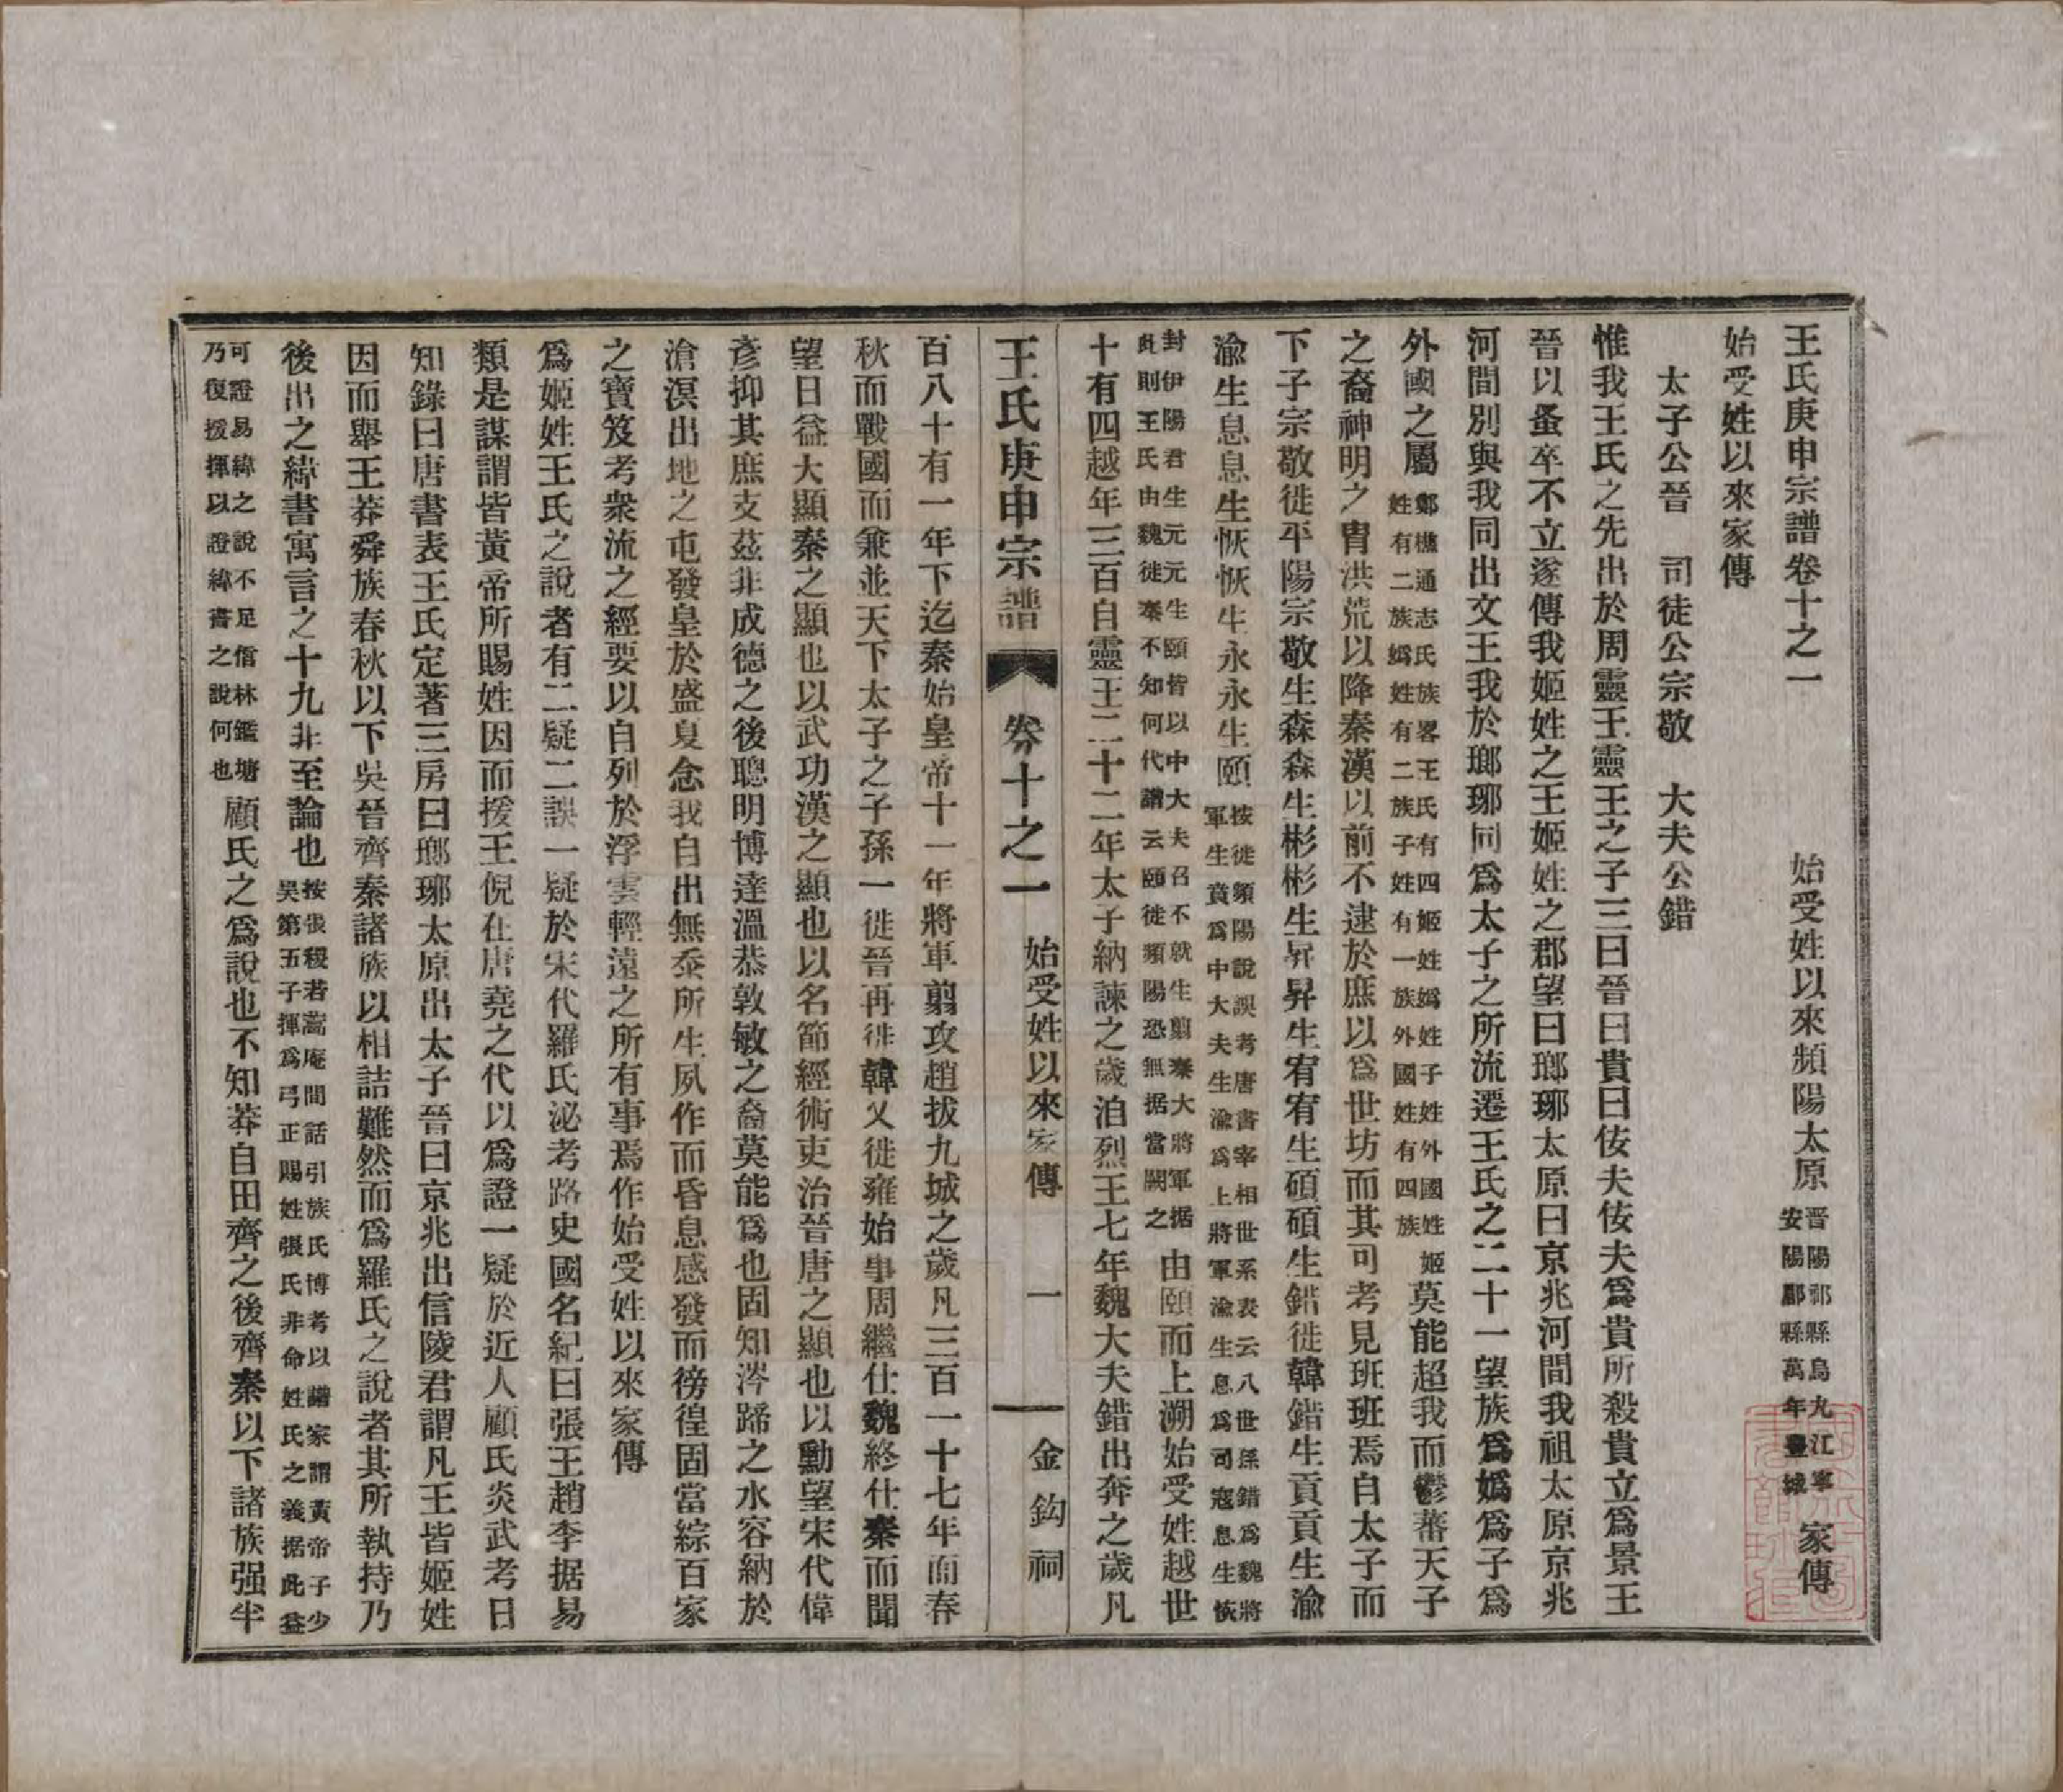 王氏庚申宗譜卷十之一　始受姓以來頻陽太原晋陽祁縣烏九江寧安陽郿縣萬年家傳
始受姓以來家傳
太子公晉　司徒公宗敬　大夫公錯
惟我王氏之先出於周靈王靈王之子三曰晉曰貴曰佞夫佞夫爲貴所殺貴立爲景王
晉以蚤卒不立遂傳我姬姓之王姬姓之郡望曰瑯琊太原曰京兆河間我祖太原京兆
河間別與我同出文王我於瑯琊同爲太子之所流遷王氏之二十一望族爲嬀爲子爲
外國之屬鄭樵通志氏族畧王氏有四姬姓嬀姓子姓外國姓姬姓有二族嬀姓有二族子姓有一族外國姓有四族莫能超我而鬱蕃天子
之裔神明之胄洪荒以降秦漢以前不逮於庶以爲世坊而其可考見班班焉自太子而
下子宗敬徙平陽宗敬生森森生彬彬生昇昇生宥宥生碩碩生錯徙韓錯生貢貢生渝
渝生息息生恢恢生永永生頤按徙頻陽說誤考唐書宰相世系表云八世孫錯爲魏將軍生賁爲中大夫生渝爲上將軍渝生息爲司寇息生恢
封伊陽君生元元生頤皆以中大夫召不就生翦秦大將軍据此則王氏由魏徙秦不知何代譜云頤徙頻陽恐無据當闕之由頤而上溯始受姓越世
十有四越年三百自靈王二十二年太子納諫之歲泊烈王七年魏大夫錯出奔之歲凡
王氏庚申宗譜　卷十之一　始受姓以來家傳　一　金鈎祠
百八十有一年下迄秦始皇帝十一年將軍翦攻趙拔九城之歲凡三百一十七年而春
秋而戰國而兼並天下太子之子孫一徙晉再徙韓又徙雍始事周繼仕魏終仕秦而聞
望日益大顯秦之顯也以武功漢之顯也以名節經術吏治晉唐之顯也以勳望宋代偉
彥抑其庶支茲非成德之後聰明博達溫恭敦敏之裔莫能爲也固知涔蹏之水容納於
滄溟出地之屯發皇於盛夏念我自出無忝所生夙作而昏息感發而徬徨固當綜百家
之寶笈考衆流之經要以自列於浮雲輕遠之所有事焉作始受姓以來家傳
爲姬姓王氏之說者有二疑二誤一疑於宋代羅氏泌考路史國名紀曰張王趙李据易
類是謀謂皆黃帝所賜姓因而援王倪在唐堯之代以爲證一疑於近人顧氏炎武考日
知錄曰唐書表王氏定著三房曰瑯琊太原出太子晉曰京兆出信陵君謂凡王皆姬姓
因而舉王莽舜族春秋以下吳晉齊秦諸族以相詰難然而爲羅氏之說者其所執持乃
後出之緯書寓言之十九非至論也按張稷若蒿庵間話引族氏博考以譜家謂黃帝子少吳第五子揮爲弓正賜姓張氏非命姓氏之義据此益
可證易緯之說不足信林鑑塘乃復援揮以證緯書之說何也顧氏之爲說也不知莽自田齊之後齊秦以下諸族强半